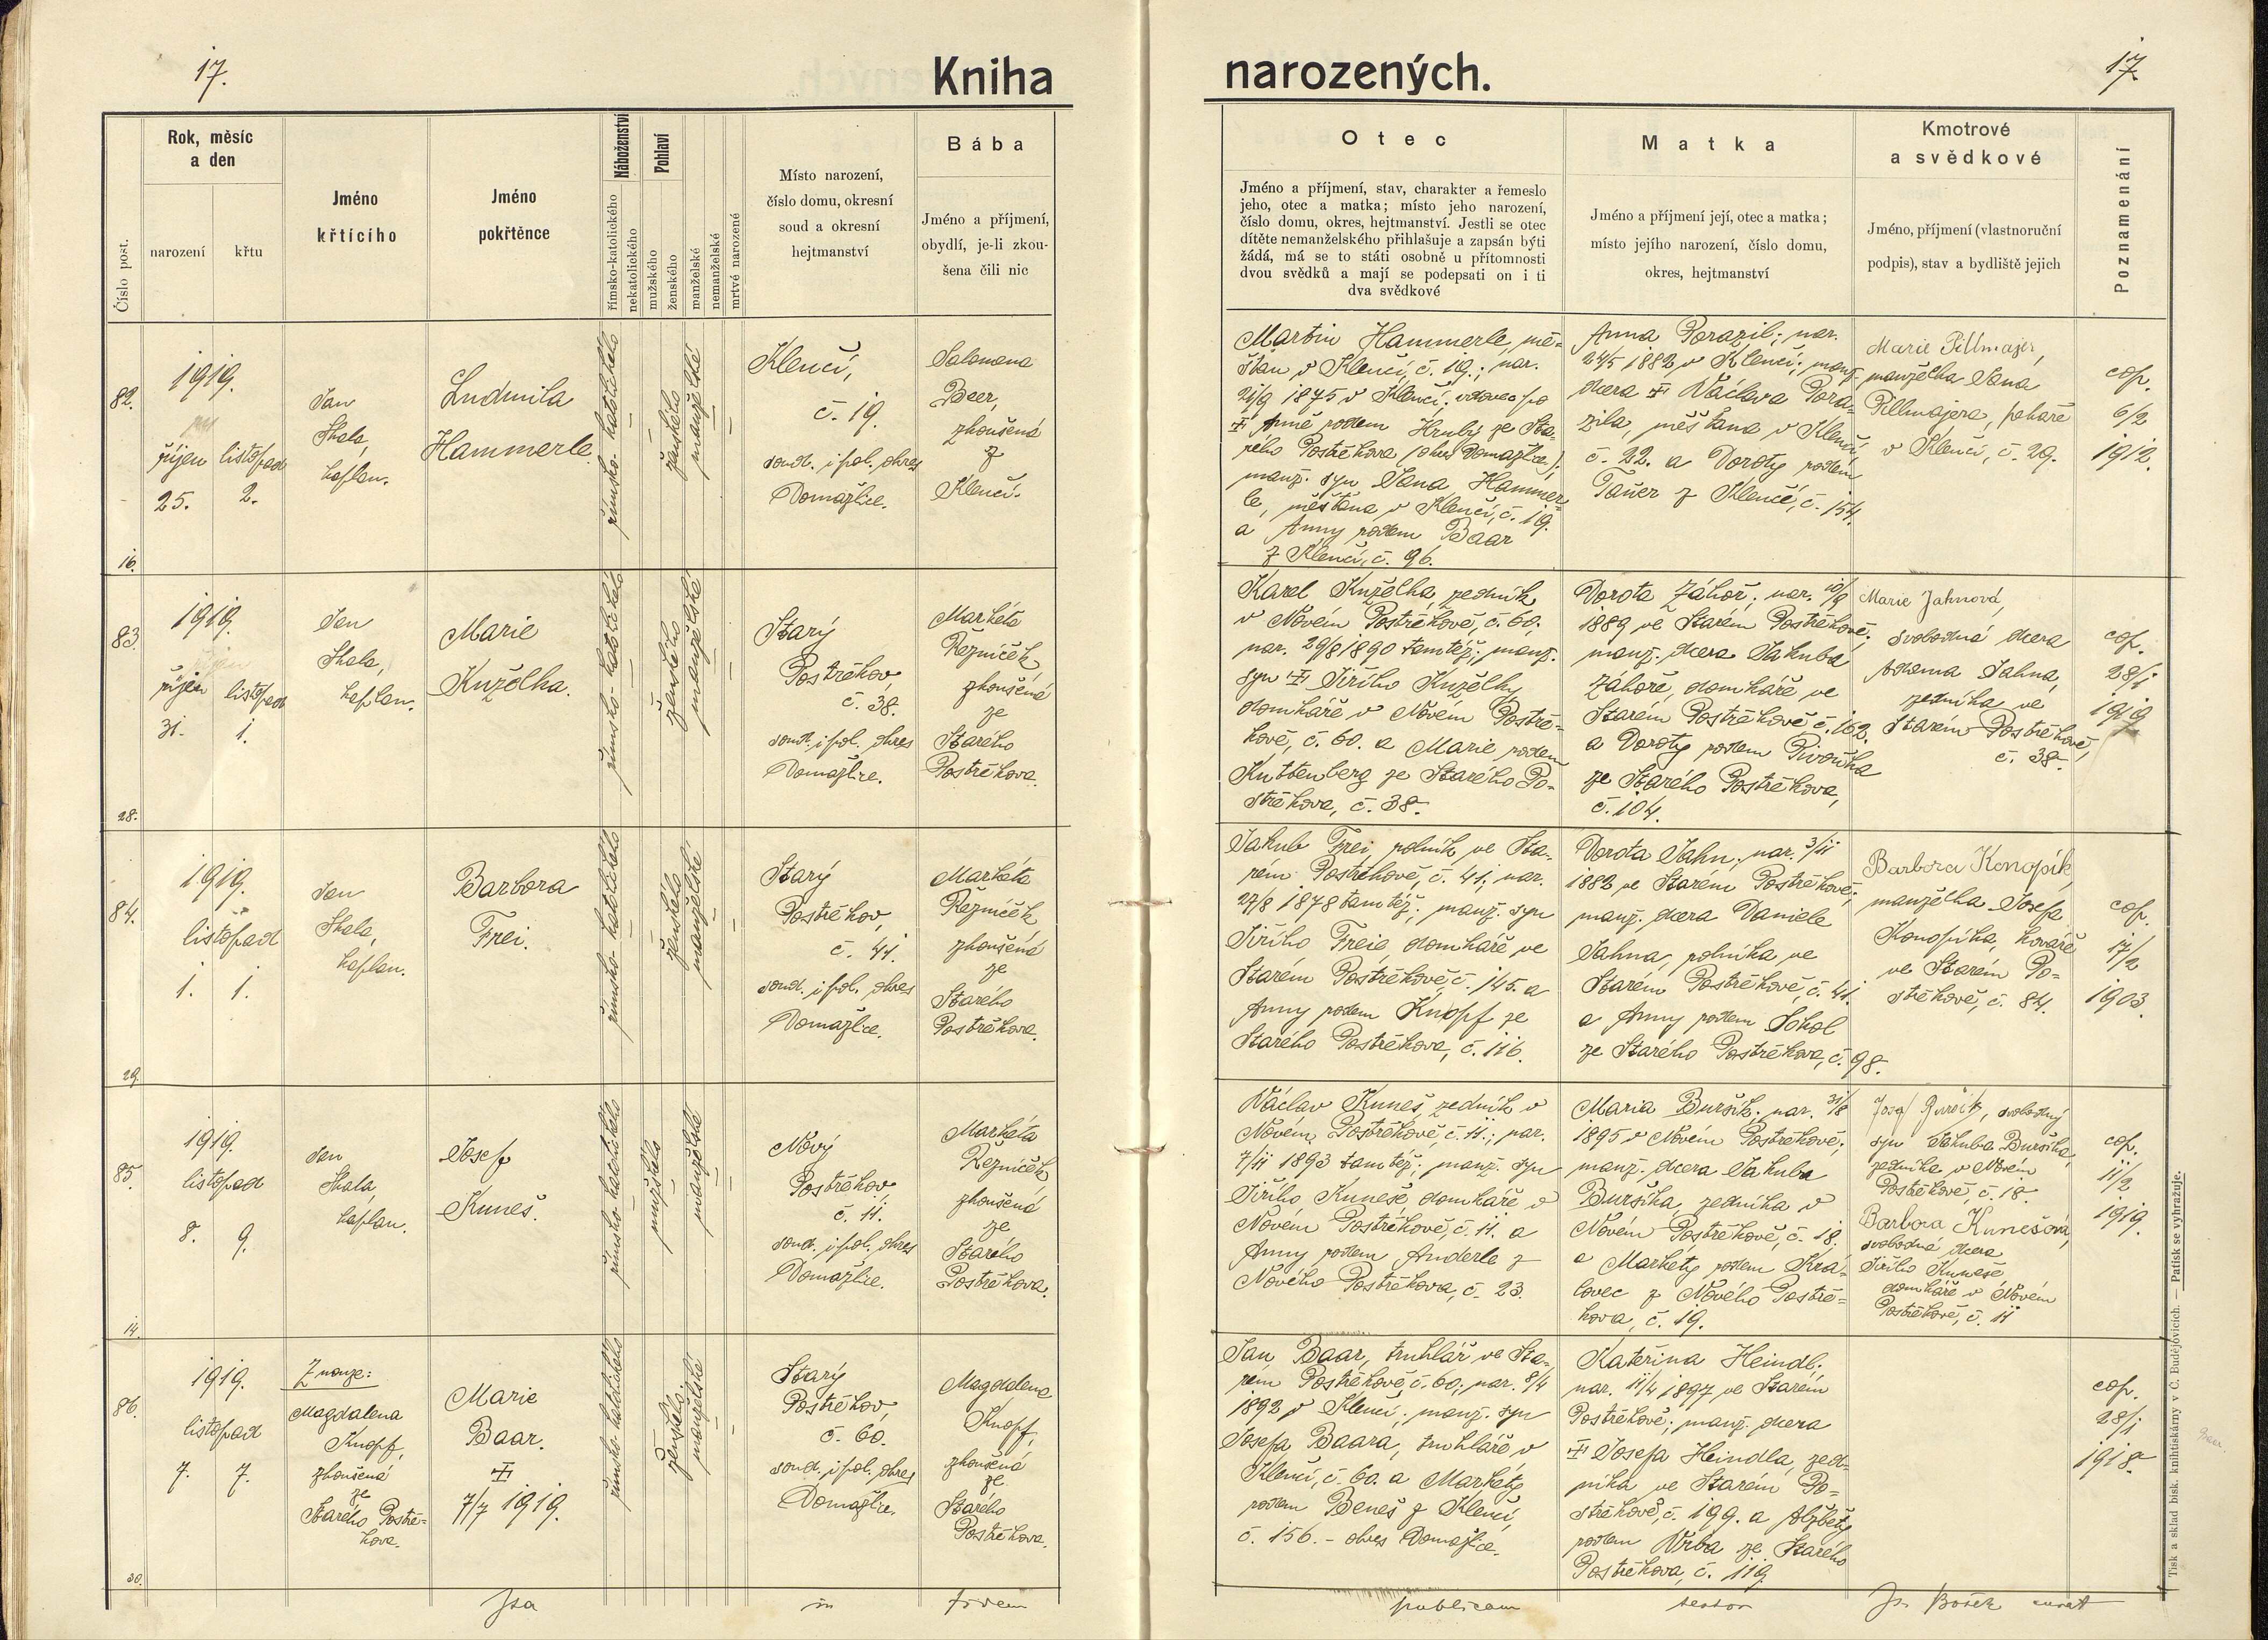 17.
Kniha
narozených.
17.
Číslo post.
Rok, měsíc
a den
narození
křtu
Jméno
křtícího
Jméno
pokřtěnce
Náboženství
římsko-katolického
nekatolického
Pohlaví
mužského
ženského
manželské
nemanželské
mrtvé narozené
Místo narození,
číslo domu, okresní
soud a okresní
hejtmanství
Bába
Jméno a příjmení,
obydlí, je-li zkou-
šena čili nic
Otec
Jméno a příjmení, stav, charakter a řemeslo
jeho, otec a matka; místo jeho narození,
číslo domu, okres, hejtmanství. Jestli se otec
dítěte nemanželského přihlašuje a zapsán býti
žádá, má se to státi osobně u přítomnosti
dvou svědků a mají se podepsati on i ti
dva svědkové
Matka
Jméno a příjmení její, otec a matka;
místo jejího narození, číslo domu,
okres, hejtmanství
Kmotrové
a svědkové
Jméno, příjmení (vlastnoruční
podpis), stav a bydliště jejich
Poznamenání
82.
1919.
říjen listopad
25. 2.
16.
Jan
Skala,
kaplan.
Ludmila
Hammerle.
římsko-katolického
ženského
manželské
Klenčí,
č. 19.
soud. i pol. okres
Domažlice.
Salomena
Beer,
zkoušená
z
Klenčí.
Martin Hammerle, mě-
šťan v Klenčí, č. 19.; nar.
21/9 1875 v Klenčí; vdovec po
Anně rodem Hrubý ze Sta-
rého Postřekova (okres Domažlice);
manž. syn Jana Hammer-
le, měšťana v Klenčí, č. 19.
a Anny rodem Baar
z Klenčí, č. 96.
Anna Porazil; nar.
24/5 1882 v Klenčí; manž.
dcera Václava Pora-
zila, měšťana v Klenčí,
č. 22. a Doroty rodem
Tauer z Klenčí, č. 154.
Marie Pillmajer,
manželka Jana
Pillmajera, pekaře
v Klenčí, č. 29.
cop.
6/2
1912.
83.
1919.
říjen listopad
31. 1.
28.
Jan
Skala,
kaplan.
Marie
Kuželka.
římsko-katolického
ženského
manželské
Starý
Postřekov,
č. 38.
soud. i pol. okres
Domažlice.
Markéta
Řezníček,
zkoušená
ze
Starého
Postřekova.
Karel Kuželka, zedník
v Novém Postřekově, č. 60.;
nar. 29/8 1890 tamtéž; manž.
syn Jiřího Kuželky,
domkáře v Novém Postře-
kově, č. 60. a Marie rodem
Kuttenberg ze Starého Po-
střekova, č. 38.
Dorota Záhoř; nar. 10/9
1889 ve Starém Postřekově;
manž. dcera Jakuba
Záhoře, domkáře ve
Starém Postřekově, č. 162.
a Doroty rodem Pivoňka
ze Starého Postřekova,
č. 104.
Marie Jahnová,
svobodná dcera
Adama Jahna,
zedníka ve
Starém Postřekově,
č. 38.
cop.
28/1
1919
84.
1919.
listopad
1. 1.
29.
Jan
Skala,
kaplan.
Barbora
Frei.
římsko-katolického
ženského
manželské
Starý
Postřekov,
č. 41.
soud. i pol. okres
Domažlice.
Markéta
Řezníček
zkoušená
ze
Starého
Postřekova.
Jakub Frei, rolník ve Sta-
rém Postřekově, č. 41; nar.
27/8 1878 tamtéž; manž. syn
Jiřího Freie, domkáře ve
Starém Postřekově, č. 145. a
Anny rodem Knopf ze
Starého Postřekova, č. 116.
Dorota Jahn; nar. 3/11
1882 ve Starém Postřekově;
manž. dcera Daniele
Jahna, rolníka ve
Starém Postřekově, č. 41.
a Anny rodem Sokol
ze Starého Postřekova, č. 98.
Barbora Konopík,
manželka Josefa
Konopíka, kováře
ve Starém Po-
střekově, č. 84.
cop.
17/2
1903.
85.
1919.
listopad
8. 9.
14.
Jan
Skala,
kaplan.
Josef
Kuneš.
římsko-katolického
mužského
manželské
Nový
Postřekov,
č. 11.
soud. i pol. okres
Domažlice.
Markéta
Řezníček,
zkoušená
ze
Starého
Postřekova.
Václav Kuneš, zedník v
Novém Postřekově, č. 11.; nar.
7/11 1893 tamtéž; manž. syn
Jiřího Kuneše, domkáře v
Novém Postřekově, č. 11. a
Anny rodem Anderle z
Nového Postřekova, č. 23.
Maria Buršík; nar. 31/8
1895 v Novém Postřekově;
manž. dcera Jakuba
Buršíka, zedníka v
Novém Postřekově, č. 18.
a Markety rodem Krá-
lovec z Nového Postře-
kova, č. 19.
Josef Buršík, svobodný
syn Jakuba Buršíka,
zedníka v Novém
Postřekově, č. 18.
Barbora Kunešová,
svobodná dcera
Jiřího Kuneše
domkáře v Novém
Postřekově, č. 11
cop.
11/2
1919.
86.
1919.
listopad
7. 7.
30.
Z nouze:
Magdalena
Knopf,
zkoušená
ze
Starého Postře-
kova.
Marie
Baar.
7/7 1919.
římsko-katolického
ženského.
manželské
Starý
Postřekov,
č. 60.
soud. i pol. okres
Domažlice.
Magdalena
Knopf,
zkoušená
ze
Starého
Postřekova.
Jan Baar, truhlář ve Sta-
rém Postřekově, č. 60.; nar. 8/4
1892 v Klenčí; manž. syn
Josefa Baara, truhláře v
Klenčí, č. 60. a Markéty
rodem Beneš z Klenčí,
č. 156. - okres Domažlice.
Kateřina Heindl.
nar. 11/4 1897 ve Starém
Postřekově; manž. dcera
Josefa Heindla, zed-
níka ve Starém Po-
střekově, č. 199. a Alžběty
rodem Vrba ze Starého
Postřekova, č. 119.
cop.
28/1
1918.
Ita in fidem publicam testor Jos. Bořek curat
Tisk a sklad bisk. knihtiskárny v Č. Budějovicích. — Patisk se vyhražuje.